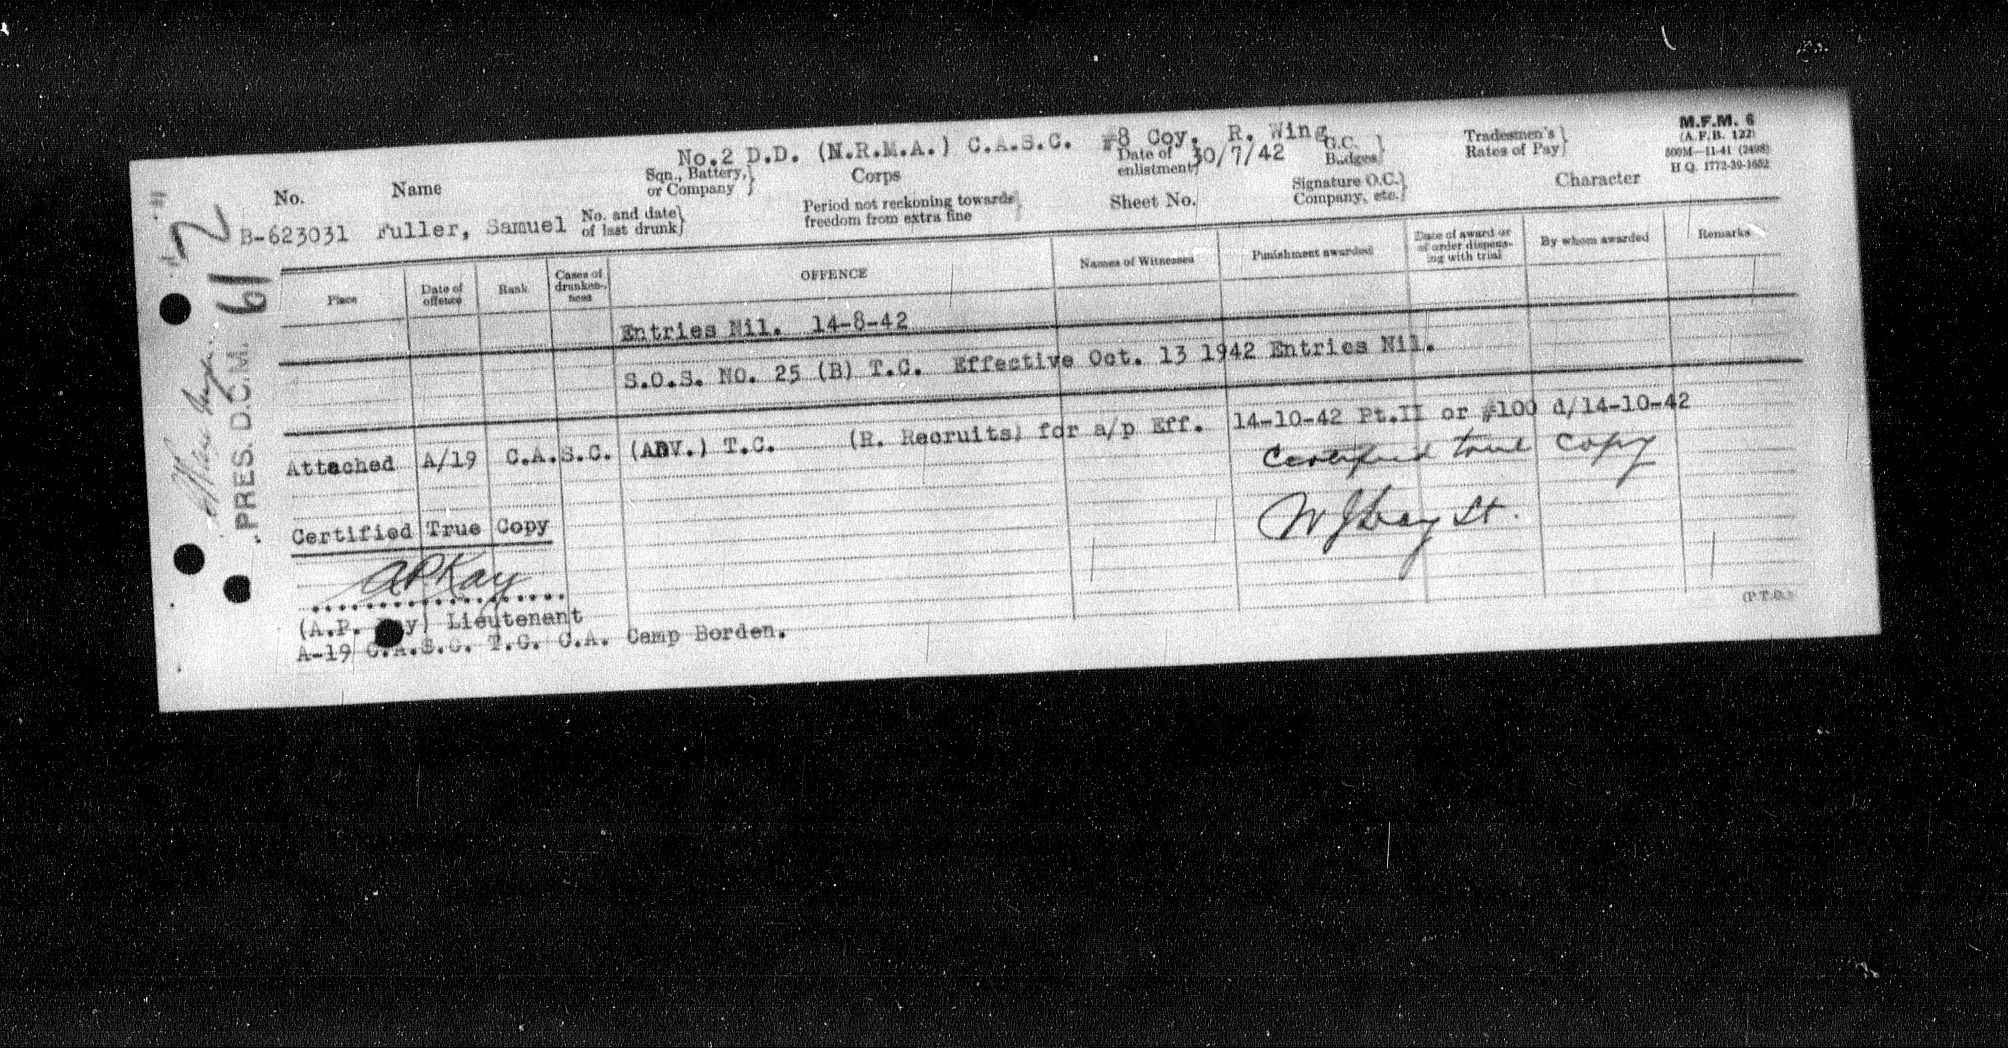 No.2 D.D. (N.R.M.A.) C.A.S.C. #8 Coy, R. Wing
M.F.M. 6
(A.F.B. 122)
500M—11-41 (2498)
H Q. 1772-39-1652
No.
Name
Sqn., Battery, or Company }
Corps
Date of enlistment } 30/7/42
G.C. Badges }
Tradesmen's Rates of Pay }
B-623031 Fuller, Samuel
No. and date of last drunk }
Period not reckoning towards freedom from extra fine }
Sheet No.
Signature O.C. Company, etc. }
Character
Place
Date of offence
Rank
Cases of drunkenness
OFFENCE
Names of Witnesses
Punishment awarded
Date of award or of order dispensing with trial
By whom awarded
Remarks
Entries Nil. 14-8-42
S.O.S. NO. 25 (B) T.C. Effective Oct. 13 1942 Entries Nil.
Attached A/19 C.A.S.C. (ADV.) T.C. (R. Recruits) for a/p Eff. 14-10-42 Pt.II or #100 d/14-10-42
Certified true copy
Lt.
Certified True Copy
A P Kay
(A.P. Kay) Lieutenant
A-19 C.A.S.C. T.C. C.A. Camp Borden.
(P.T.O.)
PRES. D.C.M. 612